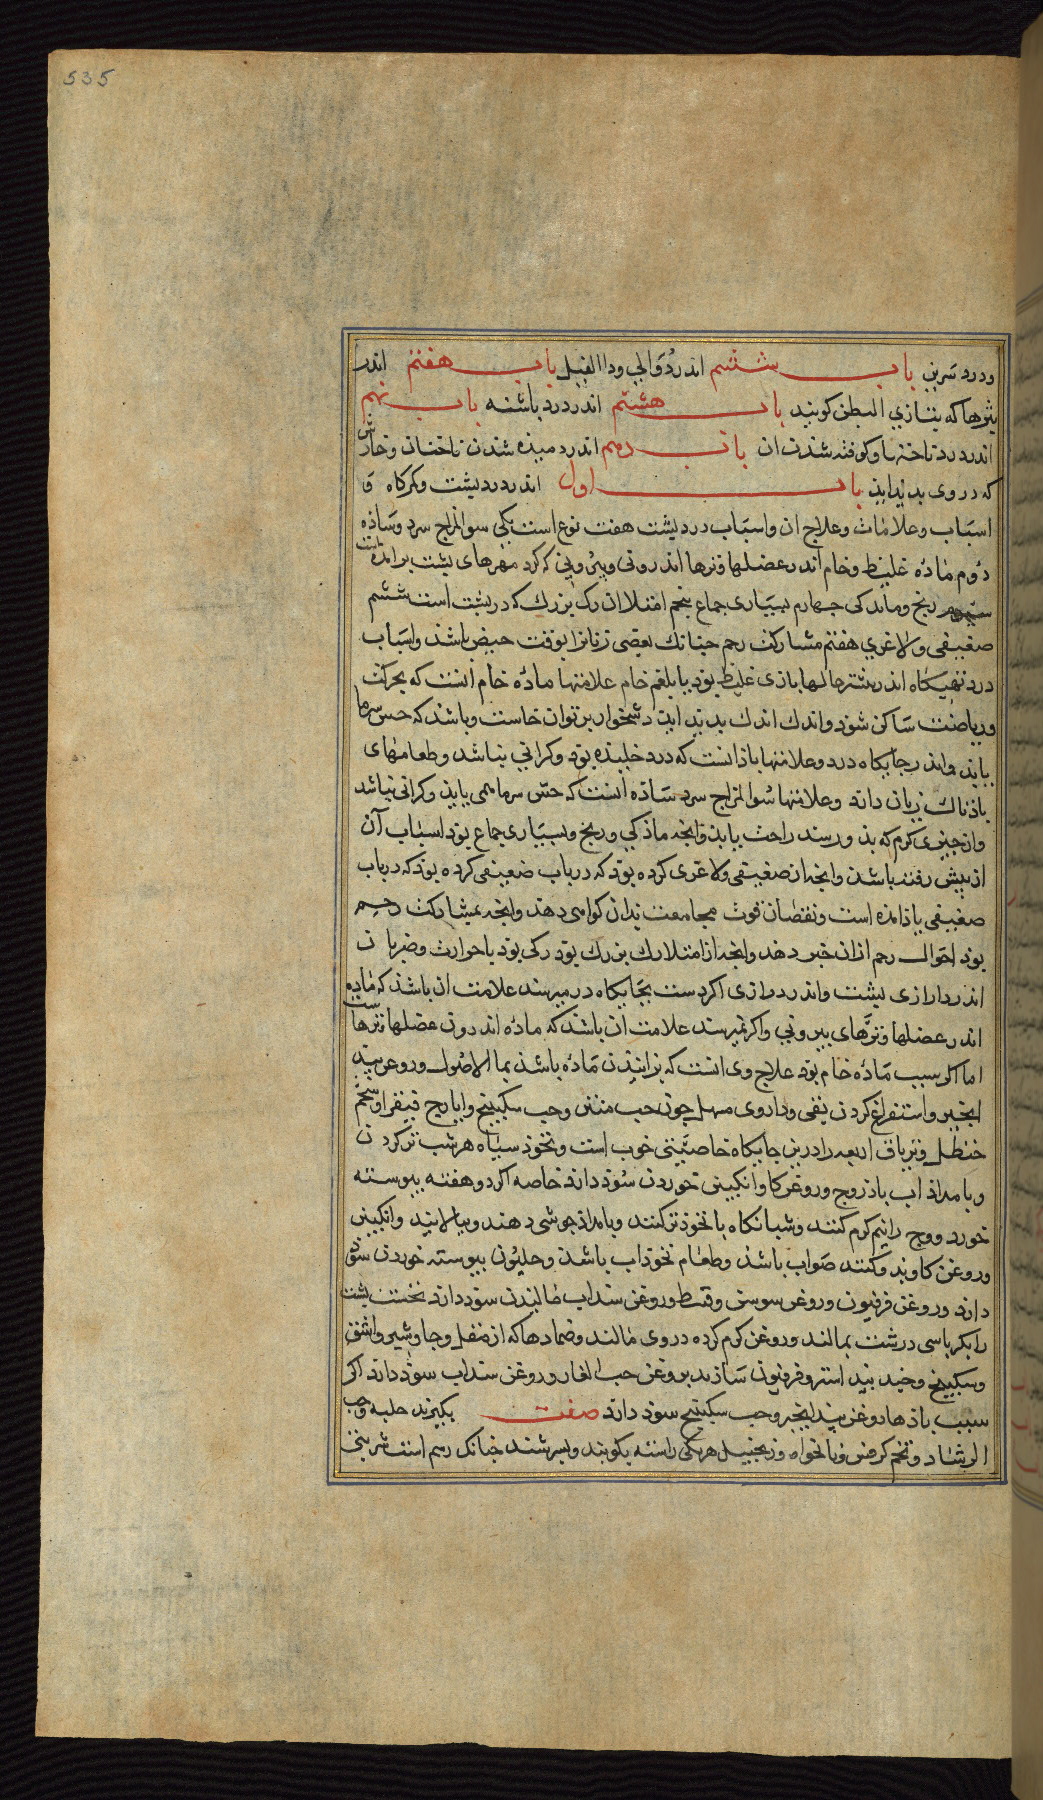 535
ودرد سرین باب ششم اندر دوالی وداالفیل باب هفتم اندر
بثرها که بتازی البطن کویند باب هشتم اندر درد باشنه باب نهم
اندر درد ناخنها وکوفته شدن ان باب دهم اندر دمیذه شدن ناخنان وخارش
که در وی بدید ایذ باب اول اندر درد پشت وکمرکاه و
اسباب وعلامات وعلاج ان واسباب درد پشت هفت نوع است یکی سوالمزاج سرد وساذه
دوم ماده غلیظ وخام اندر عضلها ووترها اندرونی وبیرونی که کرد مهرهای پشت برامده است
سیوم رنج وماندکی چهارم بسیاری جماع پنجم امتلا ان رک بزرک که در پشت است ششم
ضعیفی ولاغری هفتم مشارکت رحم چنانک بعضی زنانرا بوقت حیض باشذ واسباب
درد تهیکاه اندر بیشتر حالها بادی غلیظ بوذ یا بلغم خام علامتها ماده خام انست که بحرکت
وریاضت ساکن شوذ واندک اندک بدید ایذ دشخوار برتوان خاست وباشذ که حس سرما
یابذ واندر جایکاه درد وعلامتها باد انست که درد خلینده بوذ وکرانی نباشد وطعامهای
باذناک زیان دارد وعلامتها سوالمزاج سرد ساذه انست که حس سرما همی یابذ وکرانی نباشد
واز چیزی کرم که بذو رسد راحت یابذ وانچه ماندکی ورنج وبسیاری جماع بوذ اسباب آن
از پیش رفته باشد وانچه از ضعیفی ولاغری کرده بوذ که در باب ضعیفی کرده بوذ که در باب
ضعیفی یاذ امده است ونقصان قوت مجامعت بذان کواهی دهد وانچه بمشارکت رحم
بوذ احوال رحم ازان خبر دهد وانچه از امتلا رک بزرک بوذ رکی بوذ با حرارت وضربان
اندر درازی پشت واندر درازی اکر دست بجایکاه در میرسد علامت ان باشذ که ماده
اندر عضلها ووترهای بیرونی واکر نمیرسد علامت ان باشذ که ماده اندرون عضلها ووترهاست
اما اکر سبب ماده خام بوذ علاج وی انست که بزانیدن ماده باشذ بما الاصول وروغن بید
انجیر واستفراغ کردن بقی وداروی مسهل چون حب منتن وحب سکبینج وایارج فیقرا وشحم
حنظل وتریاق اربعه را درین جایکاه خاصیتی خوب است ونخوذ سیاه هر شب تر کردن
وبامداذ اب باذ زوج وروغن کاو وانکبین خوردن سوذ دارد خاصه اکر دو هفته پیوسته
خورد ووج را نیم کرم کنند وشبانکاه با نخوذ تر کنند وبامداذ جوشی دهند وبپالایند وانکبین
وروغن کاو بذو کنند صواب باشذ وطعام نخوذاب باشذ وحلیون پیوسته خوردن سوذ
دارد وروغن فرفیون وروغن سوسن وقسط وروغن سنداب مالیدن سوذ دارد نخست پشت
را بکرباسی درشت بمالند وروغن کرم کرده در وی مالند وضمادها که از مقل وجاوشیر واشق
وسکبینج وجند بید استر وفرفیون سازند بروغن حب الغار وروغن سنداب سوذ دارد اکر
سبب باذها روغن بید انجیر وحب سکبینج سوذ دارد صفت بکیرند حلبه وحب
الرشاد وتخم کرفس ونانخواه وزنجبیل هریکی راسته بکوبند وبسرشند چنانک رسم است شربتی